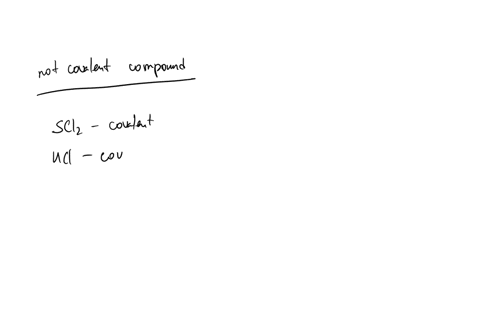 not covalent compound
SCl₂ - covalent
HCl - cov